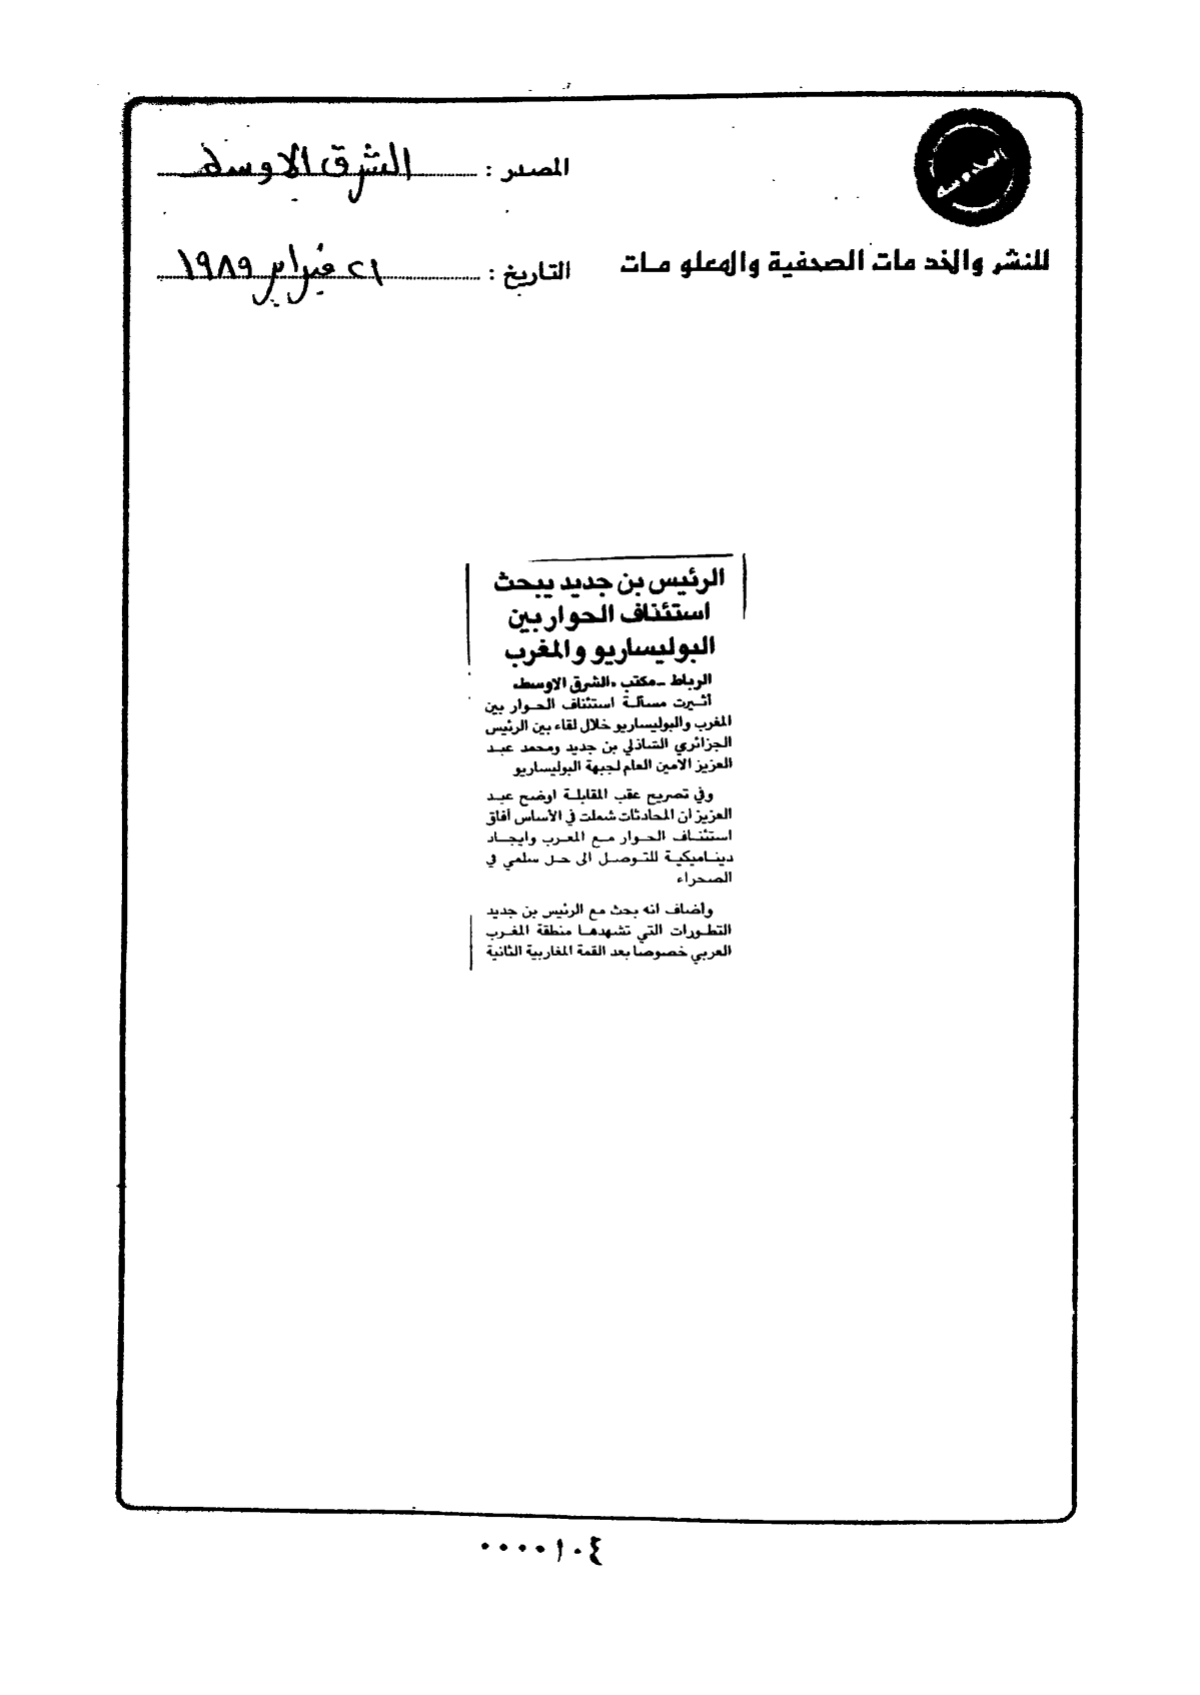 المصدر : الشرق الاوسط
للنشر والخدمات الصحفية والمعلومات
التاريخ : ٢١ فبراير ١٩٨٩
الرئيس بن جديد يبحث
استئناف الحوار بين
البوليساريو والمغرب
الرباط ـ مكتب «الشرق الاوسط»
أثيرت مسألة استئناف الحوار بين
المغرب والبوليساريو خلال لقاء بين الرئيس
الجزائري الشاذلي بن جديد ومحمد عبد
العزيز الامين العام لجبهة البوليساريو
وفي تصريح عقب المقابلة اوضح عبد
العزيز ان المحادثات شملت في الأساس أفاق
استئناف الحوار مع المغرب وايجاد
ديناميكية للتوصل الى حل سلمي في
الصحراء
وأضاف انه بحث مع الرئيس بن جديد
التطورات التي تشهدها منطقة المغرب
العربي خصوصا بعد القمة المغاربية الثانية
٠٠٠٠١٠٤